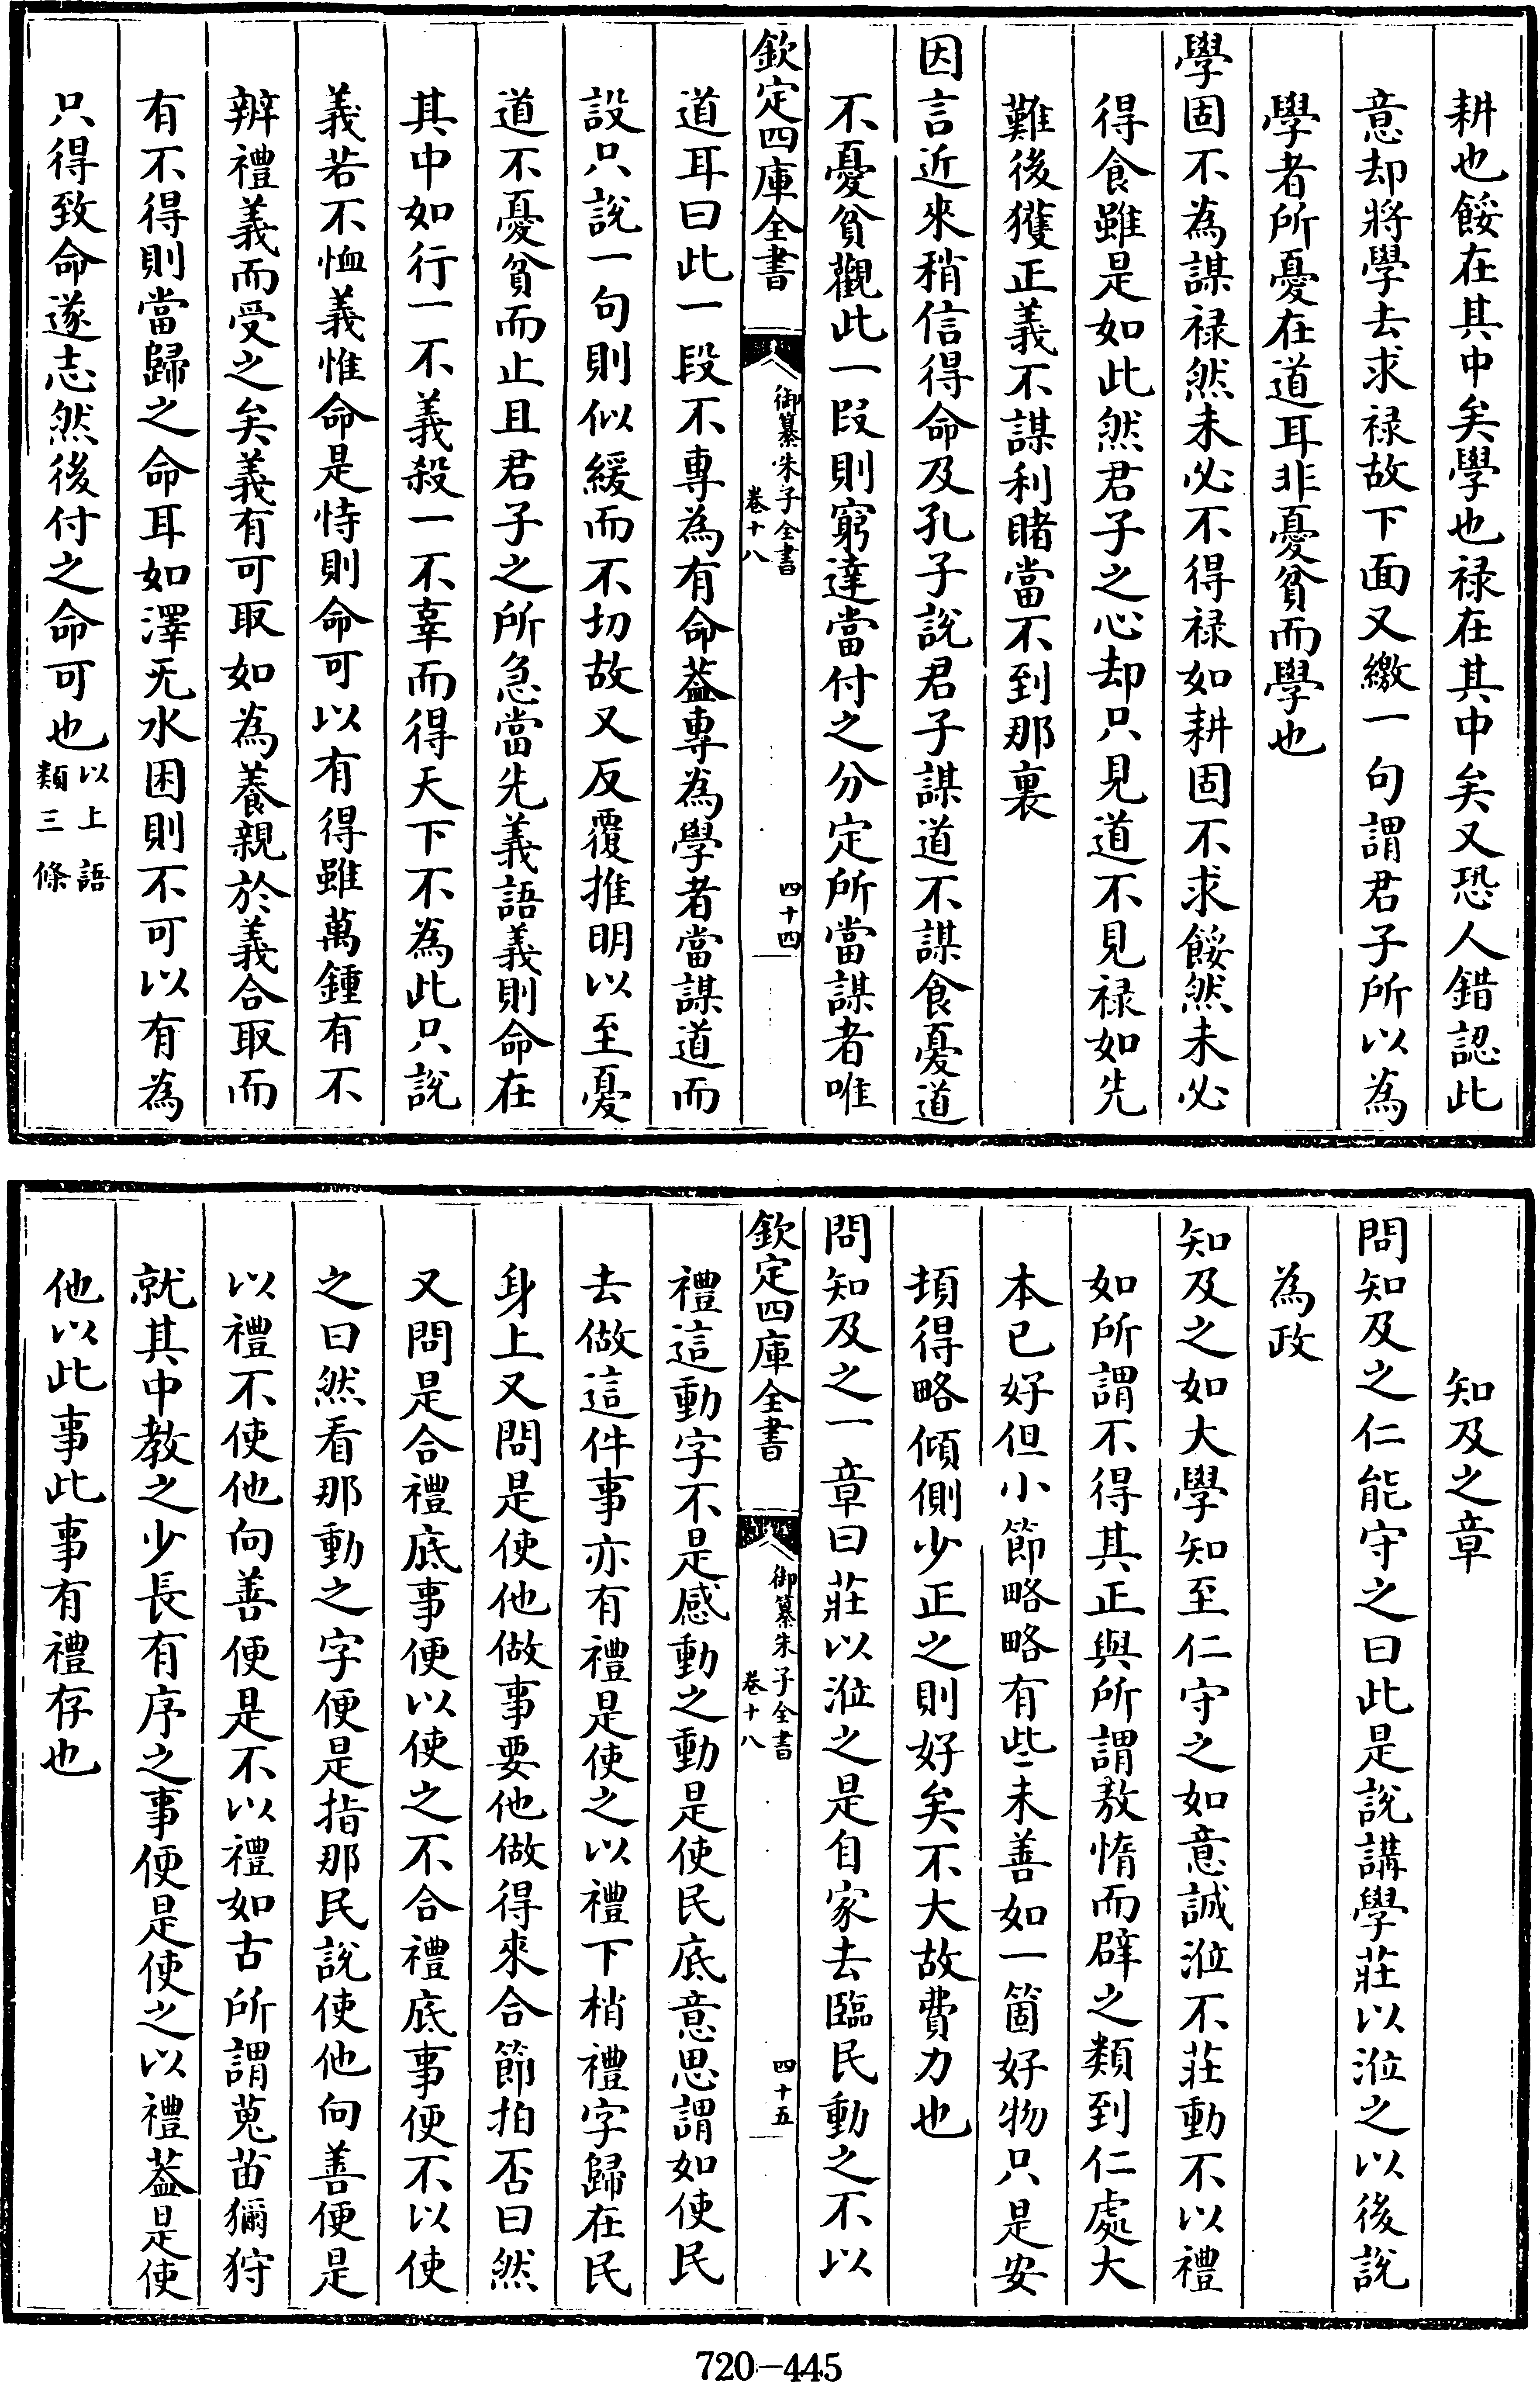 耕也餒在其中矣學也禄在其中矣又恐人錯認此
意却將學去求禄故下面又繳一句謂君子所以為
學者所憂在道耳非憂貧而學也
學固不為謀禄然未必不得禄如耕固不求餒然未必
得食雖是如此然君子之心却只見道不見禄如先
難後獲正義不謀利睹當不到那裏
因言近來稍信得命及孔子說君子謀道不謀食憂道
不憂貧觀此一段則窮達當付之分定所當謀者唯
欽定四庫全書
御纂朱子全書
卷十八
四十四
道耳曰此一段不專為有命葢專為學者當謀道而
設只說一句則似緩而不切故又反覆推明以至憂
道不憂貧而止且君子之所急當先義語義則命在
其中如行一不義殺一不辜而得天下不為此只說
義若不恤義惟命是恃則命可以有得雖萬鍾有不
辨禮義而受之矣義有可取如為養親於義合取而
有不得則當歸之命耳如澤无水困則不可以有為
只得致命遂志然後付之命可也以上語類三條
知及之章
問知及之仁能守之曰此是說講學莊以涖之以後說
為政
知及之如大學知至仁守之如意誠涖不莊動不以禮
如所謂不得其正與所謂敖惰而辟之類到仁處大
本已好但小節略略有些未善如一箇好物只是安
頓得略傾側少正之則好矣不大故費力也
問知及之一章曰莊以涖之是自家去臨民動之不以
欽定四庫全書
御纂朱子全書
卷十八
四十五
禮這動字不是感動之動是使民底意思謂如使民
去做這件事亦有禮是使之以禮下梢禮字歸在民
身上又問是使他做事要他做得來合節拍否曰然
又問是合禮底事便以使之不合禮底事便不以使
之曰然看那動之字便是指那民說使他向善便是
以禮不使他向善便是不以禮如古所謂蒐苗獮狩
就其中教之少長有序之事便是使之以禮葢是使
他以此事此事有禮存也
720-445